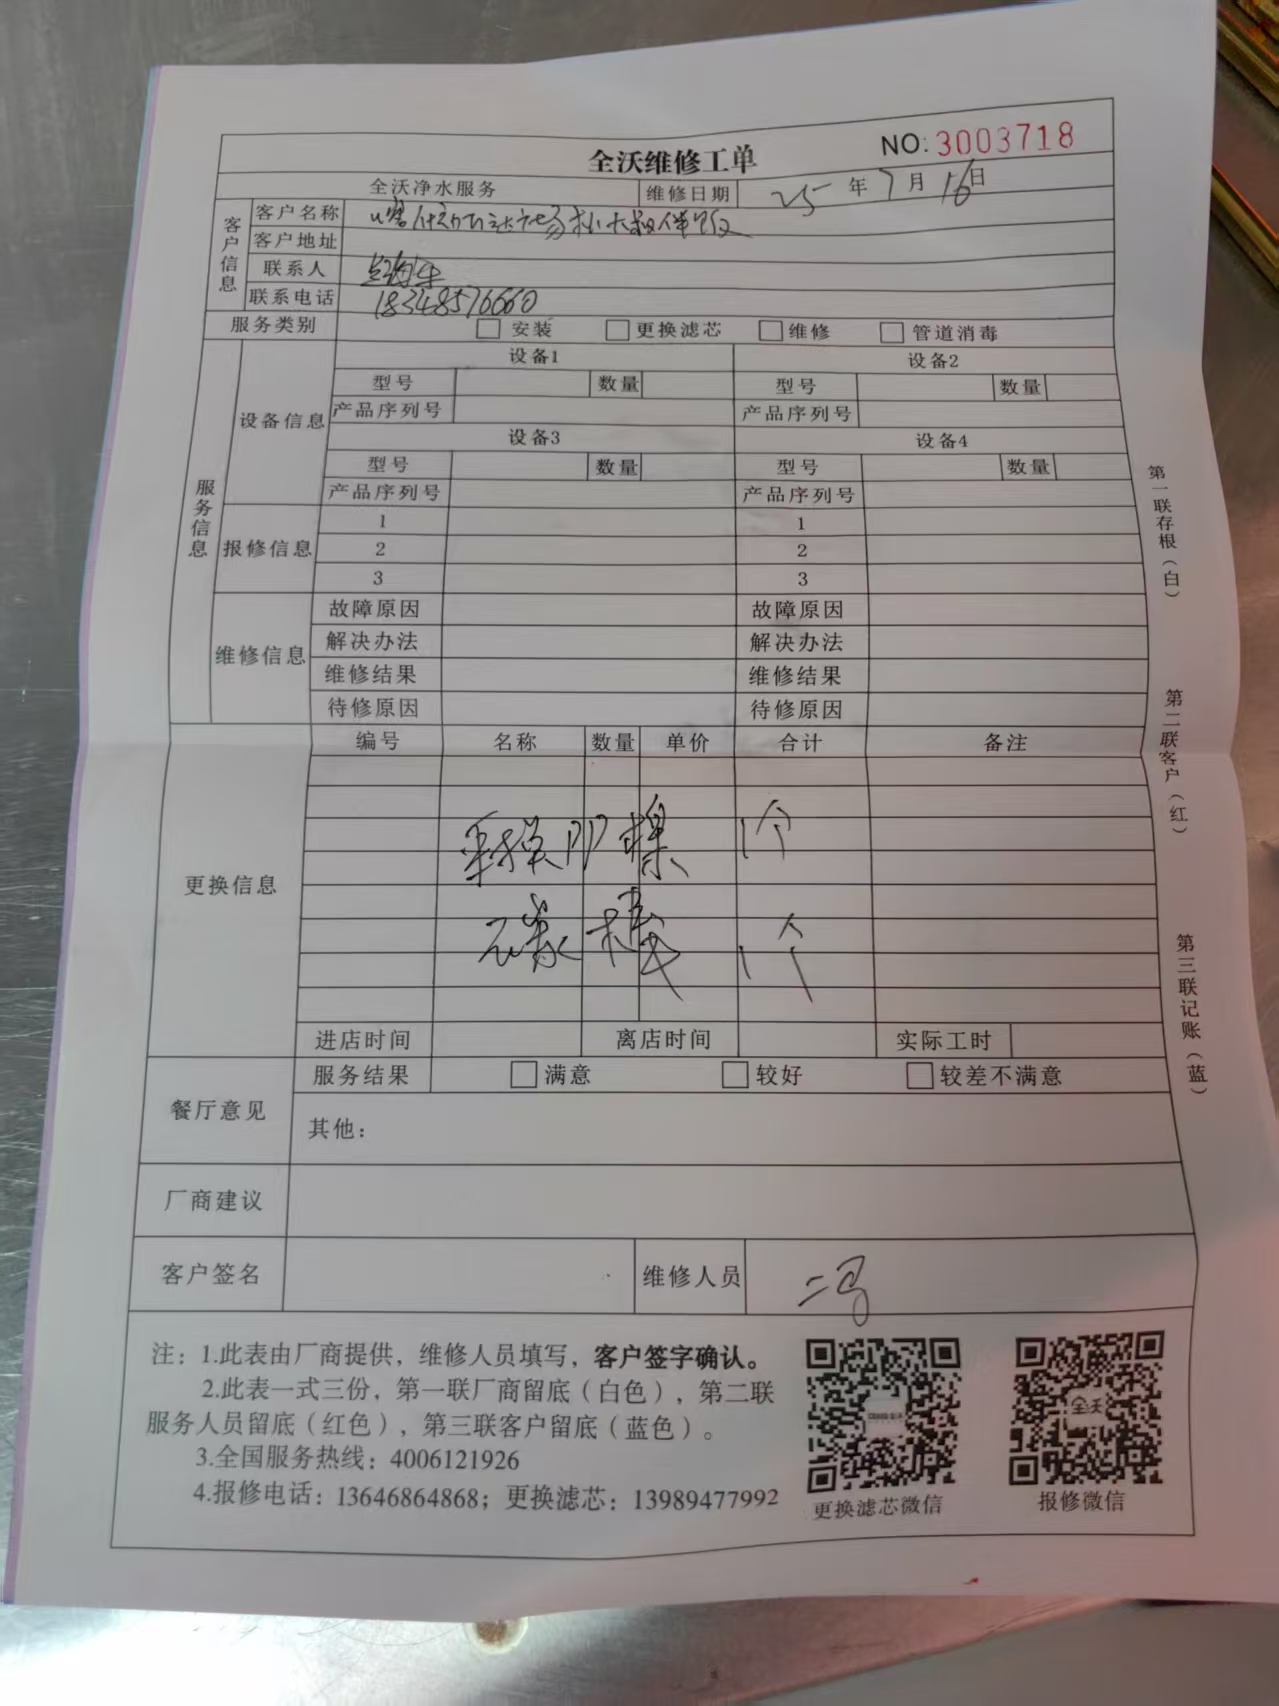 全沃维修工单 NO:3003718
全沃净水服务 维修日期 25年7月16日
客户信息
客户名称
客户地址
联系人
联系电话 18348576660
服务类别 安装 更换滤芯 维修 管道消毒
服务信息
设备信息
设备1 设备2
型号 数量 型号 数量
产品序列号 产品序列号
设备3 设备4
型号 数量 型号 数量
产品序列号 产品序列号
报修信息
1 1
2 2
3 3
维修信息
故障原因 故障原因
解决办法 解决办法
维修结果 维修结果
待修原因 待修原因
更换信息
编号 名称 数量 单价 合计 备注
1个
1个
进店时间 离店时间 实际工时
餐厅意见
服务结果 满意 较好 较差不满意
其他：
厂商建议
客户签名 维修人员
注：1.此表由厂商提供，维修人员填写，客户签字确认。
2.此表一式三份，第一联厂商留底（白色），第二联
服务人员留底（红色），第三联客户留底（蓝色）。
3.全国服务热线：4006121926
4.报修电话：13646864868；更换滤芯：13989477992
更换滤芯微信 报修微信
全沃
第一联存根（白）
第二联客户（红）
第三联记账（蓝）